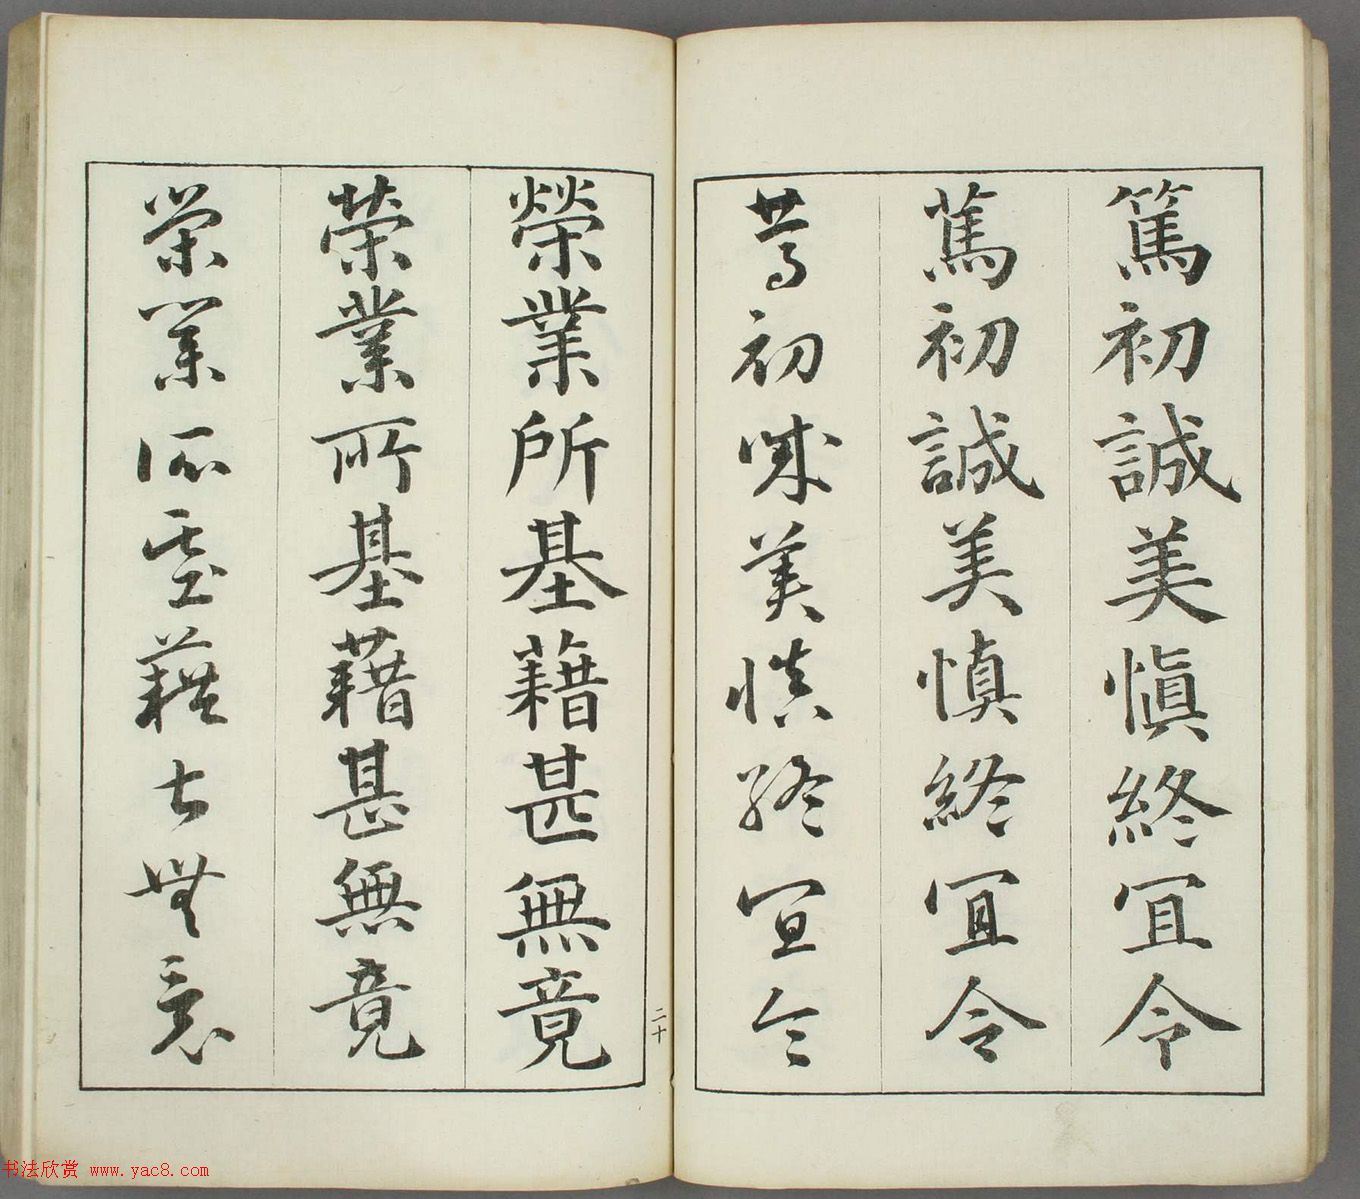 篤初誠美慎終宜令
篤初誠美慎終宜令
篤初誠美慎終宜令
榮業所基藉甚無竟
榮業所基藉甚無竟
榮業所基藉甚無竟
二十
书法欣赏 www.yac8.com